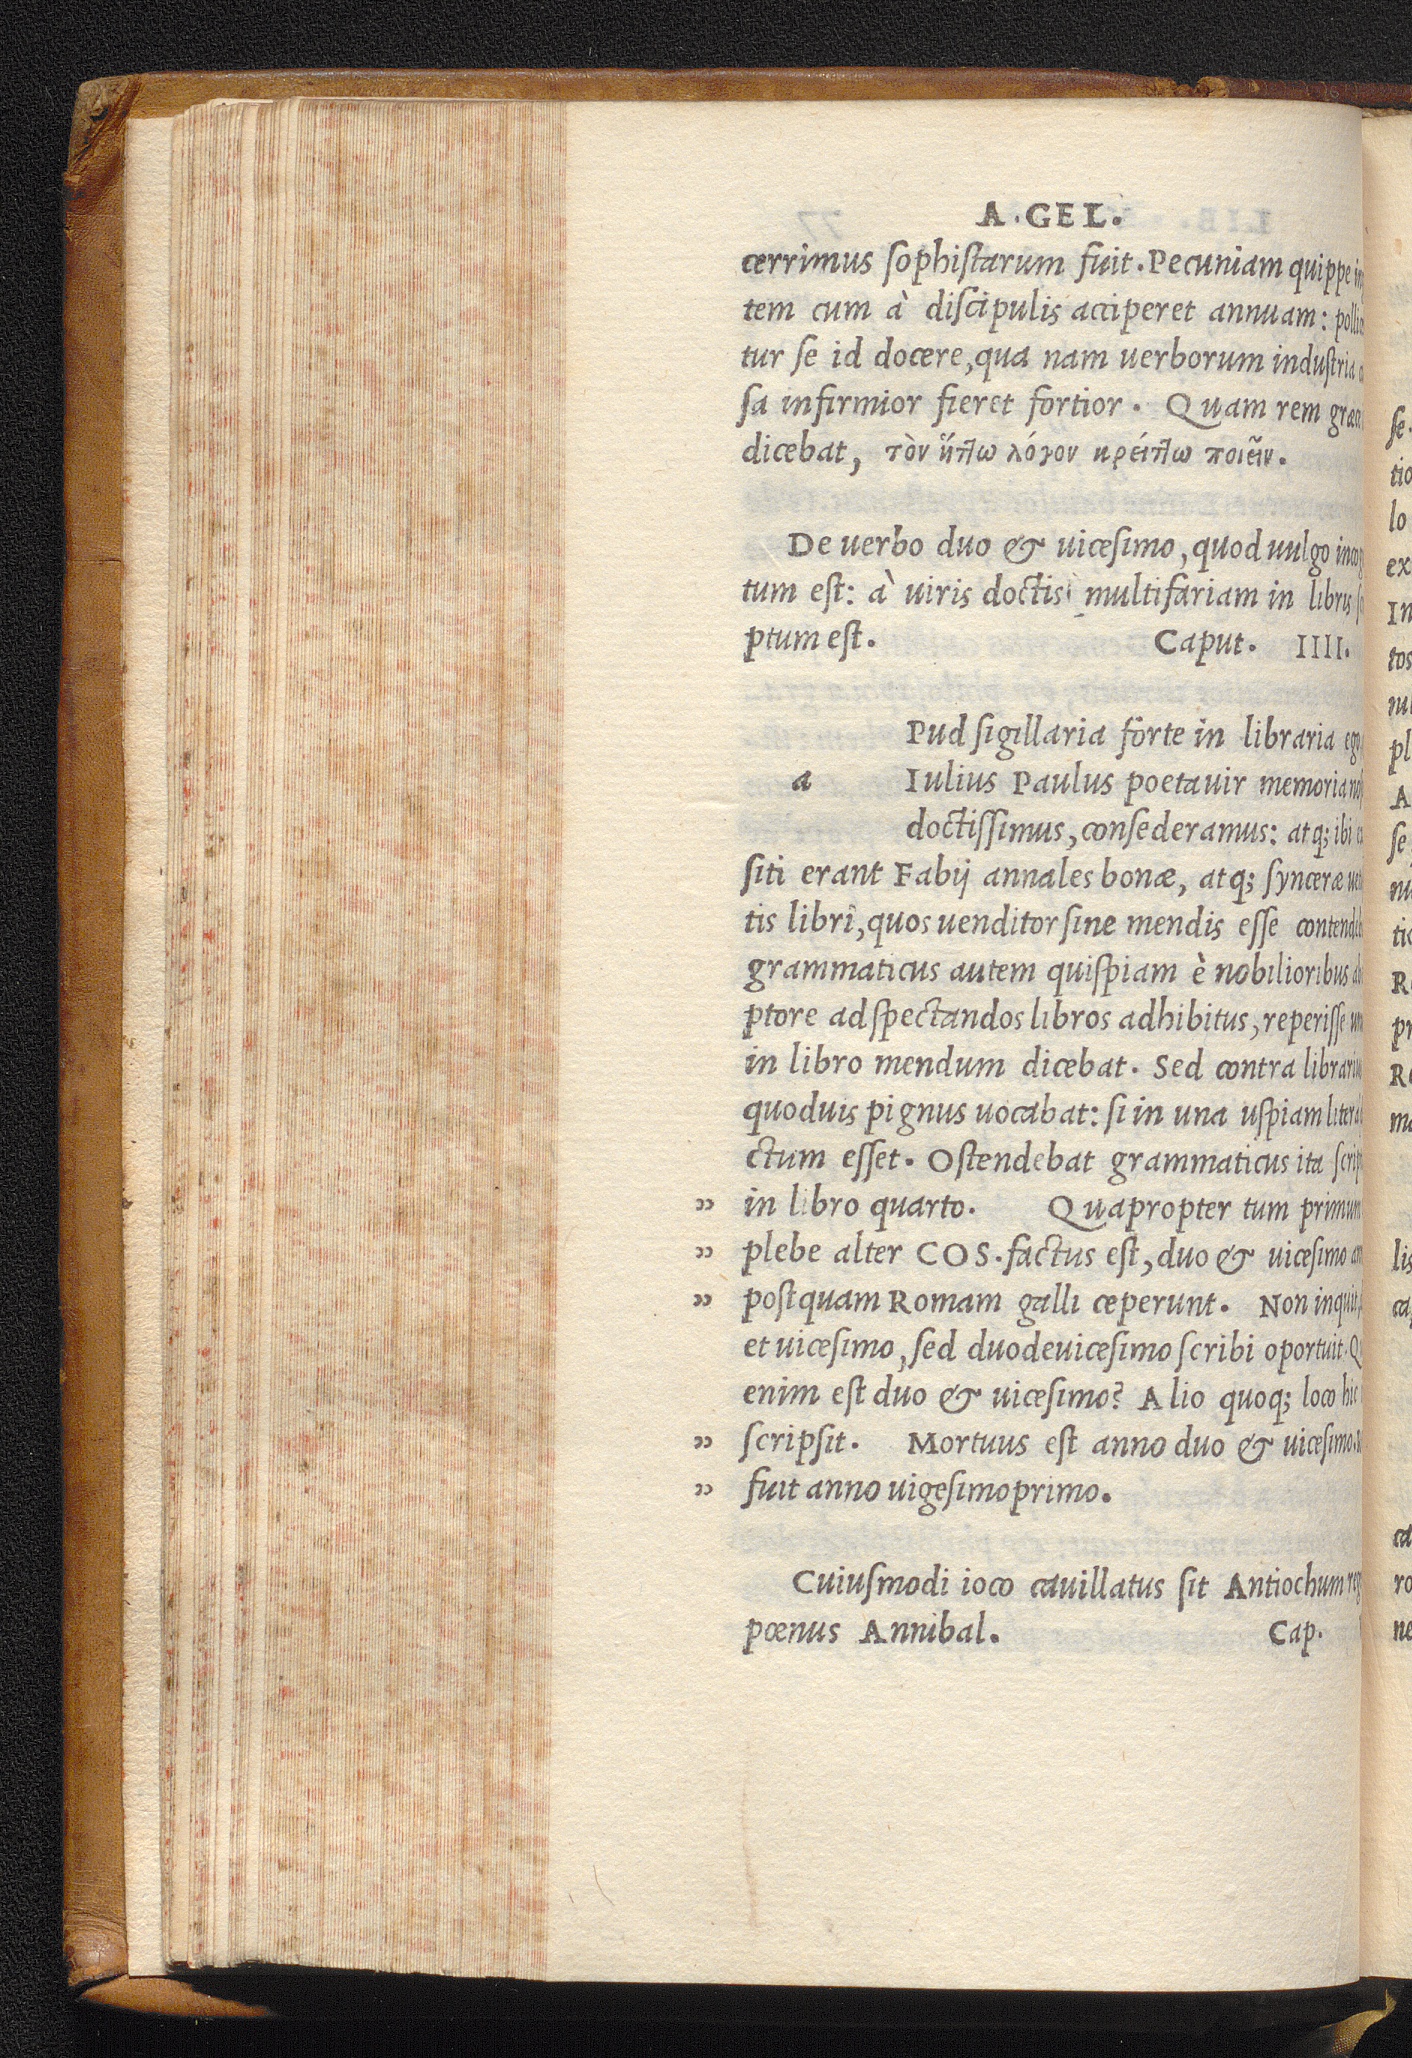 A. GEL.
cerrimus sophistarum fuit. Pecuniam quippe
tem cum à discipulis acciperet annuam:
tur se id docere, qua nam uerborum industria
sa infirmior fieret fortior. Quam rem
dicebat, τὸν ἥττω λόγον κρείττω ποιεῖν.
De uerbo duo & uicesimo, quod uulgo
tum est: à uiris doctis multifariam in libris
ptum est. Caput. IIII.
Pud sigillaria forte in libraria
a Iulius Paulus poeta uir memoria
doctissimus, consederamus: atq; ibi
siti erant Fabij annales bonæ, atq; synceræ
tis libri, quos uenditor sine mendis esse
grammaticus autem quispiam è nobilioribus
ptore ad spectandos libros adhibitus, reperisse
in libro mendum dicebat. Sed contra
quoduis pignus uocabat: si in una uspiam
ctum esset. Ostendebat grammaticus ita
„ in libro quarto. Quapropter tum primum
„ plebe alter COS. factus est, duo & uicesimo
„ postquam Romam galli ceperunt. Non inquit,
et uicesimo, sed duodeuicesimo scribi oportuit.
enim est duo & uicesimo? Alio quoq; loco hic
„ scripsit. Mortuus est anno duo & uicesimo.
„ fuit anno uigesimoprimo.
Cuiusmodi ioco cauillatus sit Antiochum
pœnus Annibal. Cap.
se.
tio
lo
ex
In
tos
pl
A
se
ma
lis
ro
ne